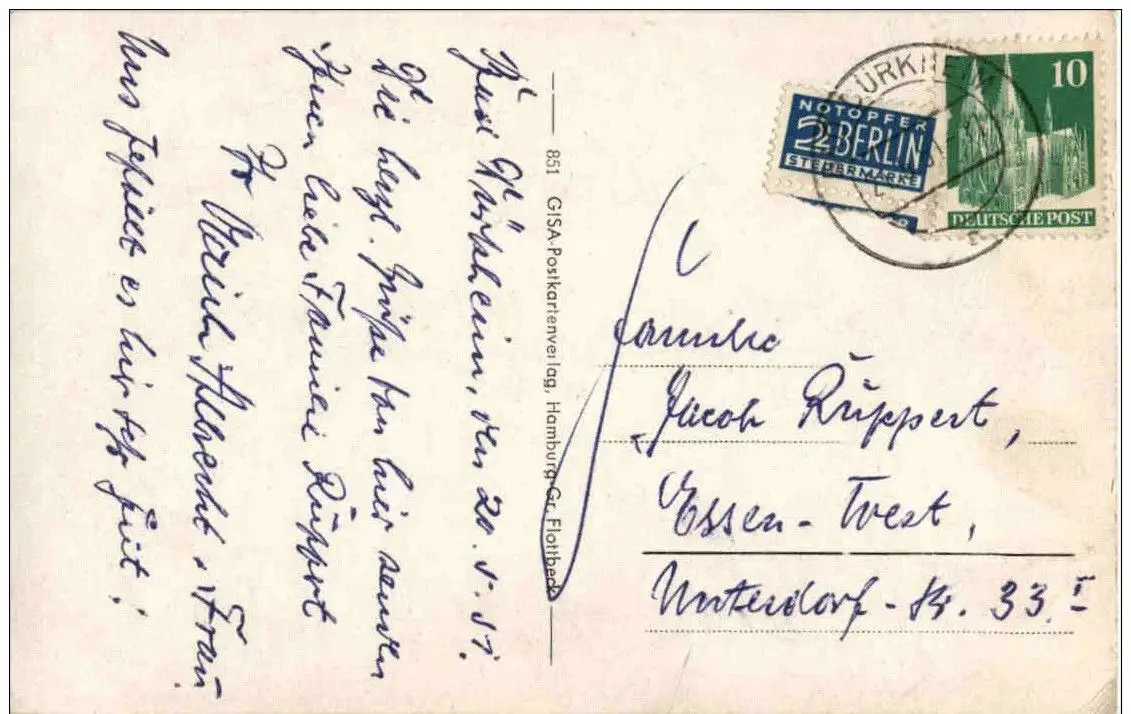 Bad Dürkheim, den 20.5.51.
Die herzl. Grüße von hier senden
Ihnen liebe Familie Rüppert
Ihr Albrecht u. Frau.
Uns gefällt es hier sehr gut!
851 GISA-Postkartenverlag, Hamburg-Gr. Flottbek
DÜRKHEIM
NOTOPFER
2 BERLIN
STEUERMARKE
10
DEUTSCHE POST
Familie
Jacob Rüppert,
Essen-West,
Unterdorf-Str. 33 I